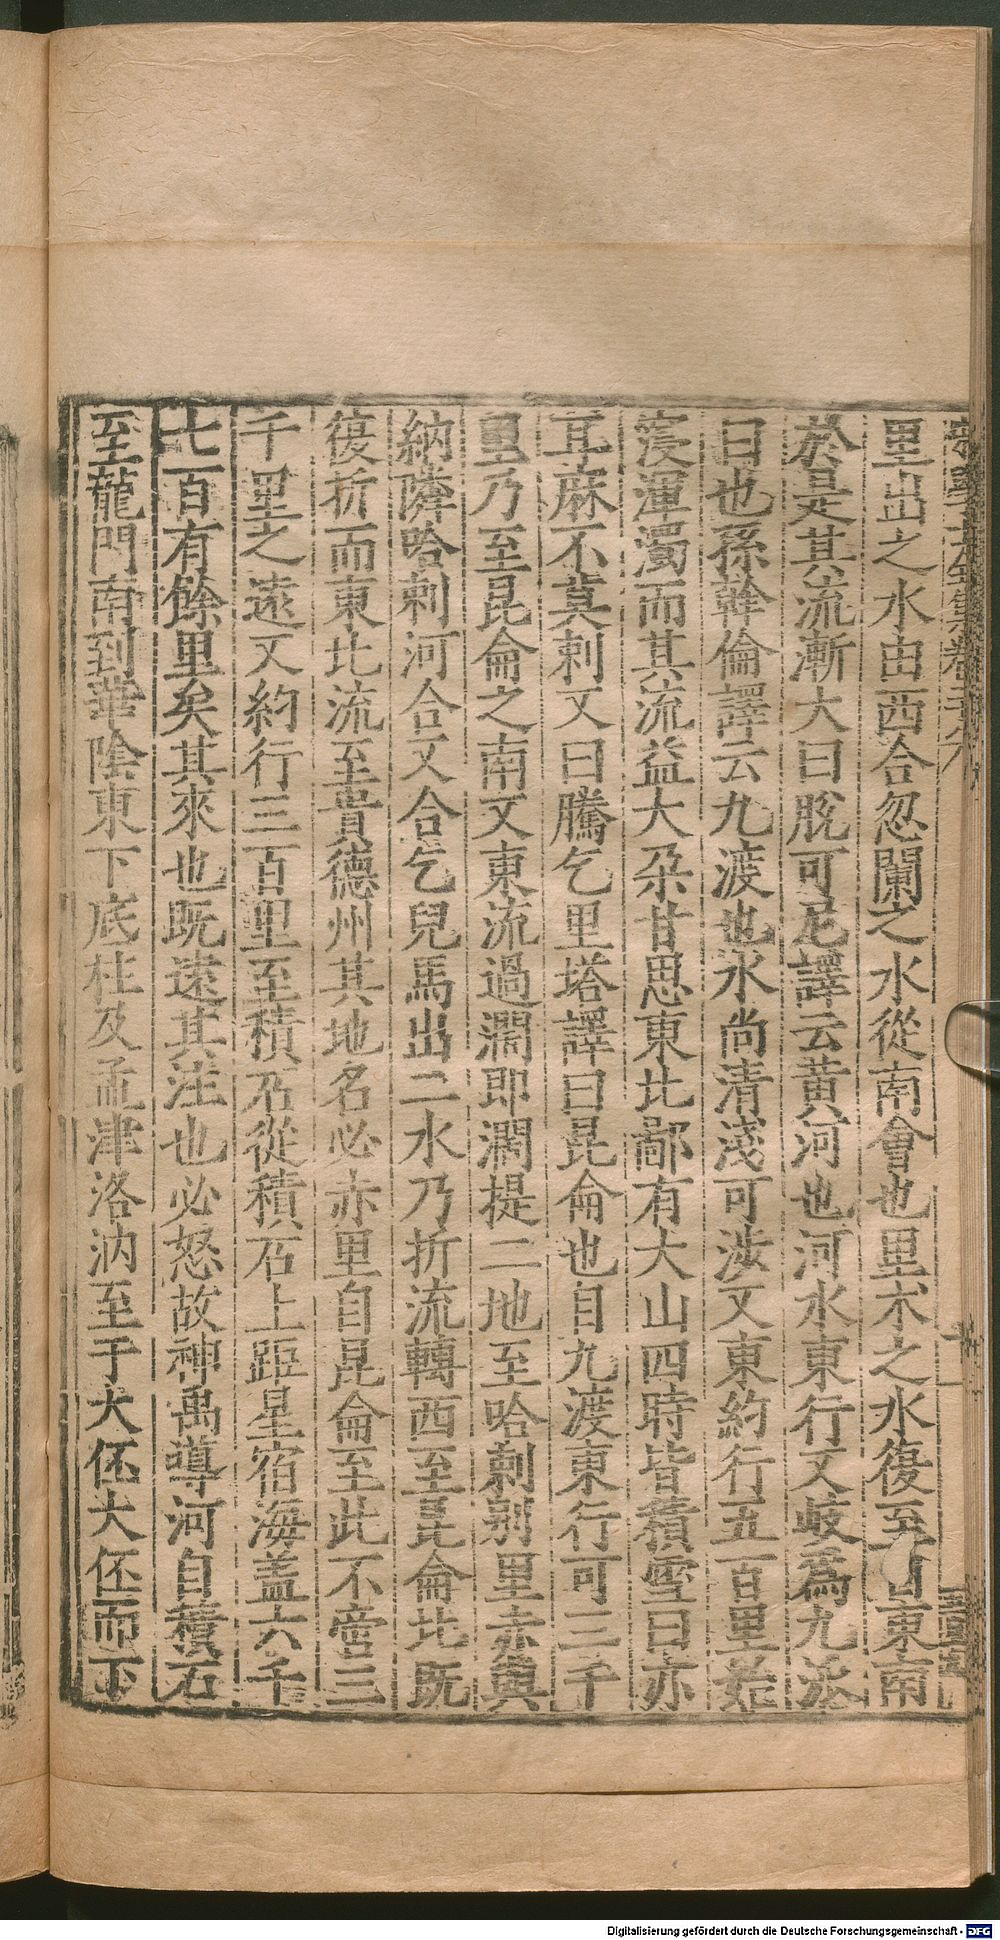 里出之水由西合忽闌之水從南會也里朮之水復至自東南
於是其流漸大曰脫可尼譯云黃河也河水東行又岐爲九派
曰也孫幹倫譯云九渡也水尚清淺可涉又東約行五百里始
寖渾濁而其流益大朶甘思東北鄙有大山四時皆積雪曰亦
耳麻不莫剌又曰騰乞里塔譯曰昆侖也自九渡東行可三千
里乃至昆侖之南又東流過濶即濶提二地至哈剌別里赤與
納隣哈剌河合又合乞兒馬出二水乃折流轉西至昆侖北既
復折而東北流至貴德州其地名必赤里自昆侖至此不啻三
千里之遠又約行三百里至積石從積石上距星宿海蓋六千
七百有餘里矣其來也既遠其注也必怒故神禹導河自積石
至龍門南到華陰東下底柱及孟津洛汭至于大伾大伾而下
Digitalisierung gefördert durch die Deutsche Forschungsgemeinschaft - DFG